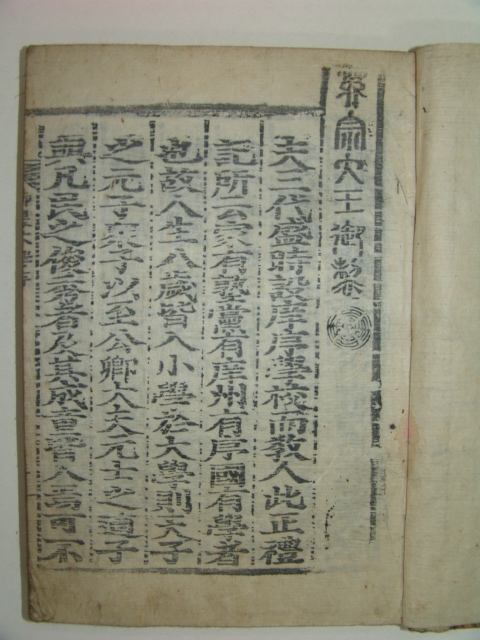 英宗大王御製
三代盛時設庠序學校而教人此正禮
記所云家有塾黨有庠州有序國有學者
也故人生八歲皆入小學於大學則天子
之元子衆子以至公卿大夫元士之適子
與凡民之俊秀者及其成童皆入焉可不